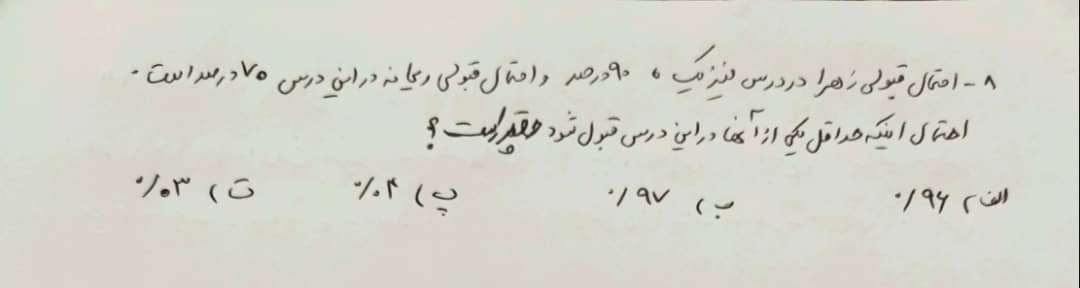 ۸ - احتمال قبولی زهرا در درس فیزیک ، ۹۰ درصد و احتمال قبولی ریحانه در این درس ۷۰ درصد است .
احتمال اینکه حداقل یکی از آنها در این درس قبول شود چقدر است ؟
الف) ۰/۹۶ ب) ۰/۹۷ پ) ۰/۰۴ ت) ۰/۰۳